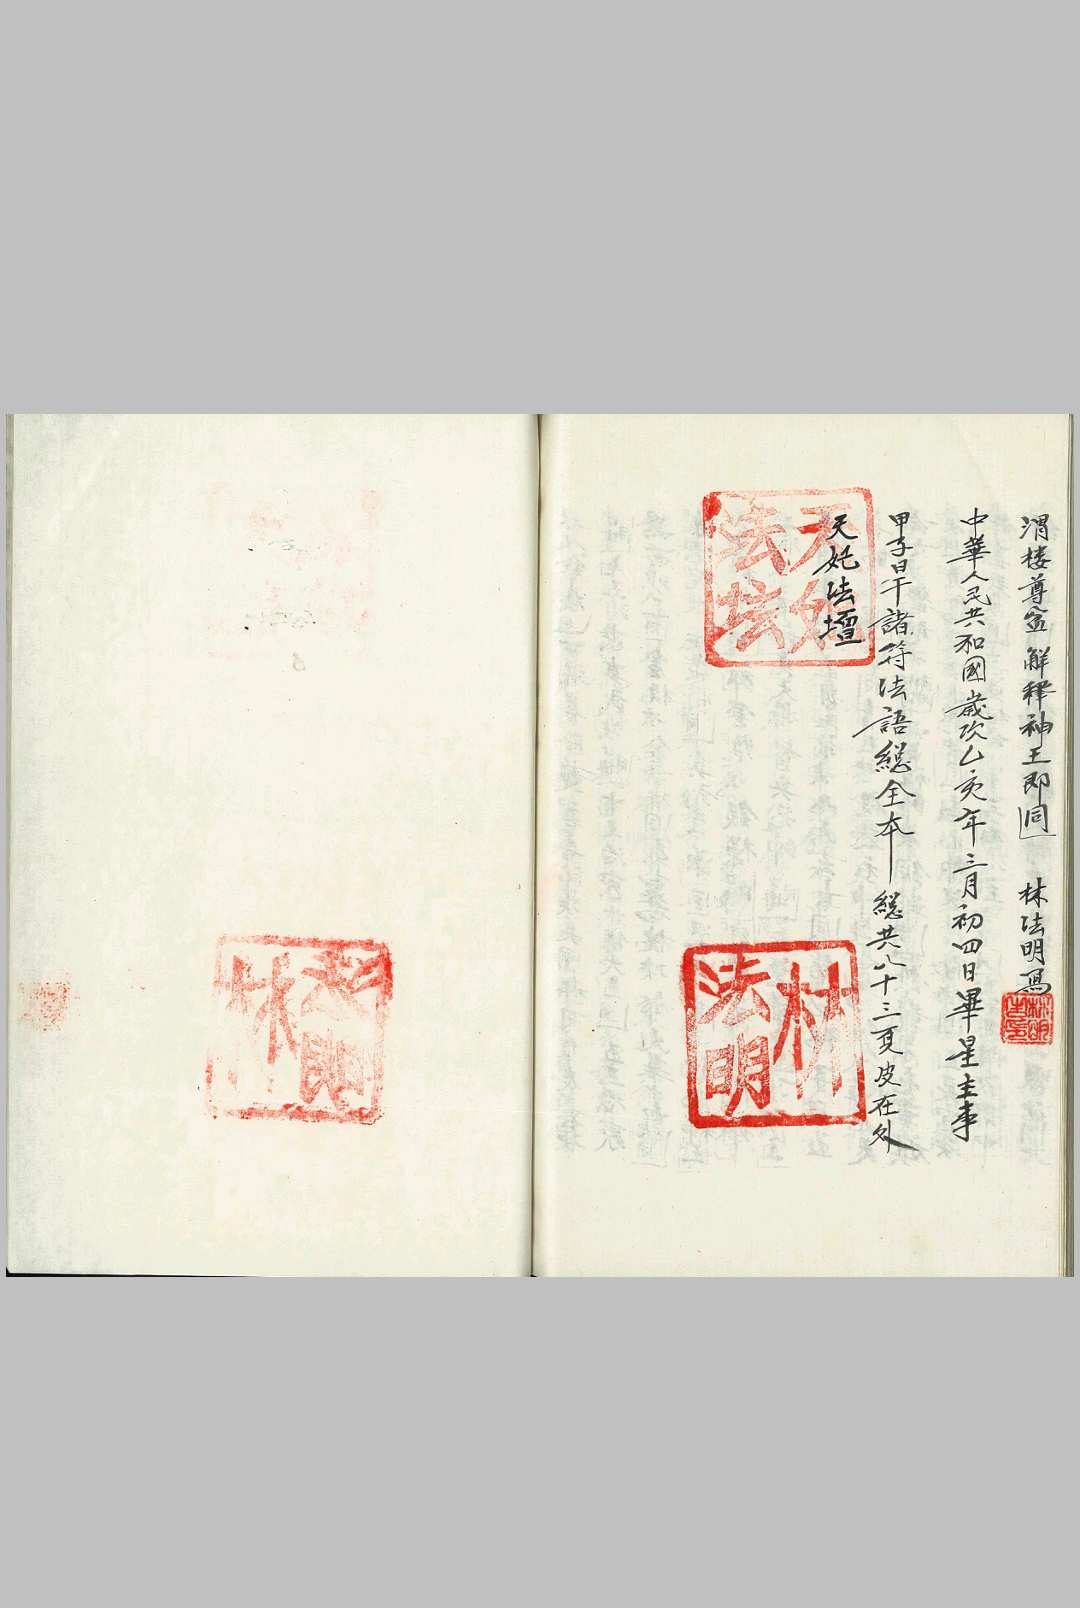 渭楼尊盆解釋神王即同 林法明寫
中華人民共和國歲次乙亥年三月初四日畢星主事
甲子日干諸符法語總全本 總共八十三頁皮在外
天妃法壇
天妃法坛
林法明